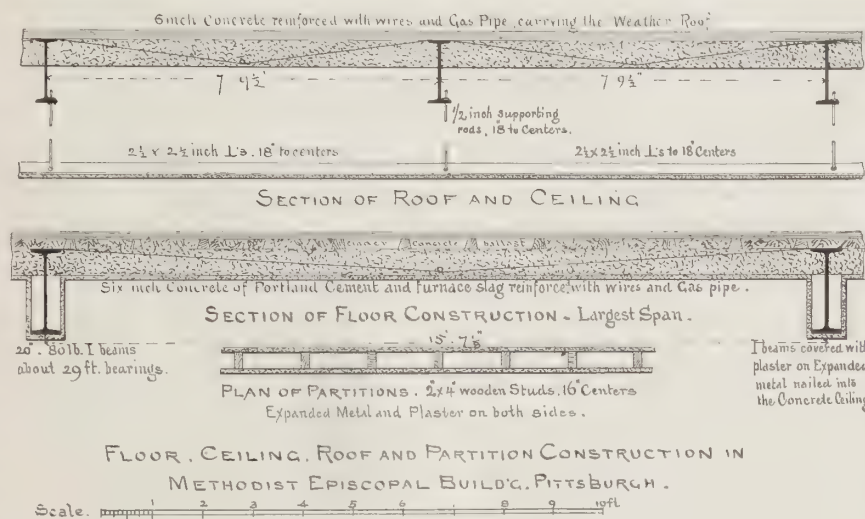 6 inch Concrete reinforced with wires and Gas Pipe, carrying the Weather Roof
7 9½"
7 9½"
½ inch supporting
rods, 18" to Centers.
2½ x 2½ inch L's. 18" to centers
2½ x 2½ inch L's to 18" Centers
SECTION OF ROOF AND CEILING
cinder concrete ballast
Six inch Concrete of Portland Cement and Furnace slag reinforce. with wires and Gas pipe.
SECTION OF FLOOR CONSTRUCTION - Largest Span.
15'-7⅛"
20". 80 lb. I beams
about 29 ft. bearings.
I beams covered with
plaster on Expanded
metal nailed into
the Concrete Ceiling
PLAN OF PARTITIONS. 2"x4" wooden Studs. 16" Centers
Expanded Metal and Plaster on both sides.
FLOOR. CEILING. ROOF AND PARTITION CONSTRUCTION IN
METHODIST EPISCOPAL BUILD'G. PITTSBURGH.
Scale. 1 2 3 4 5 6 7 8 9 10ft